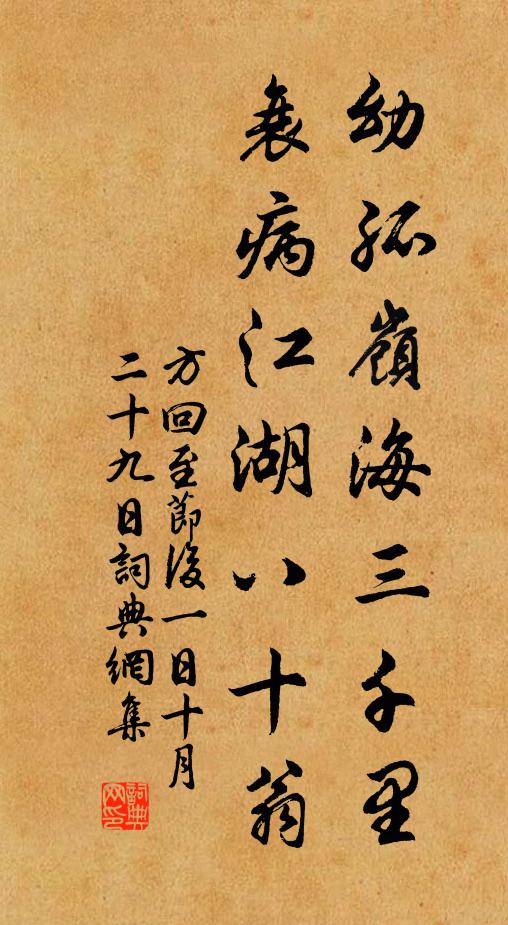 幼孤嶺海三千里
衰病江湖八十翁
方回至節後一日十月
二十九日詞典網集
詞典
网印